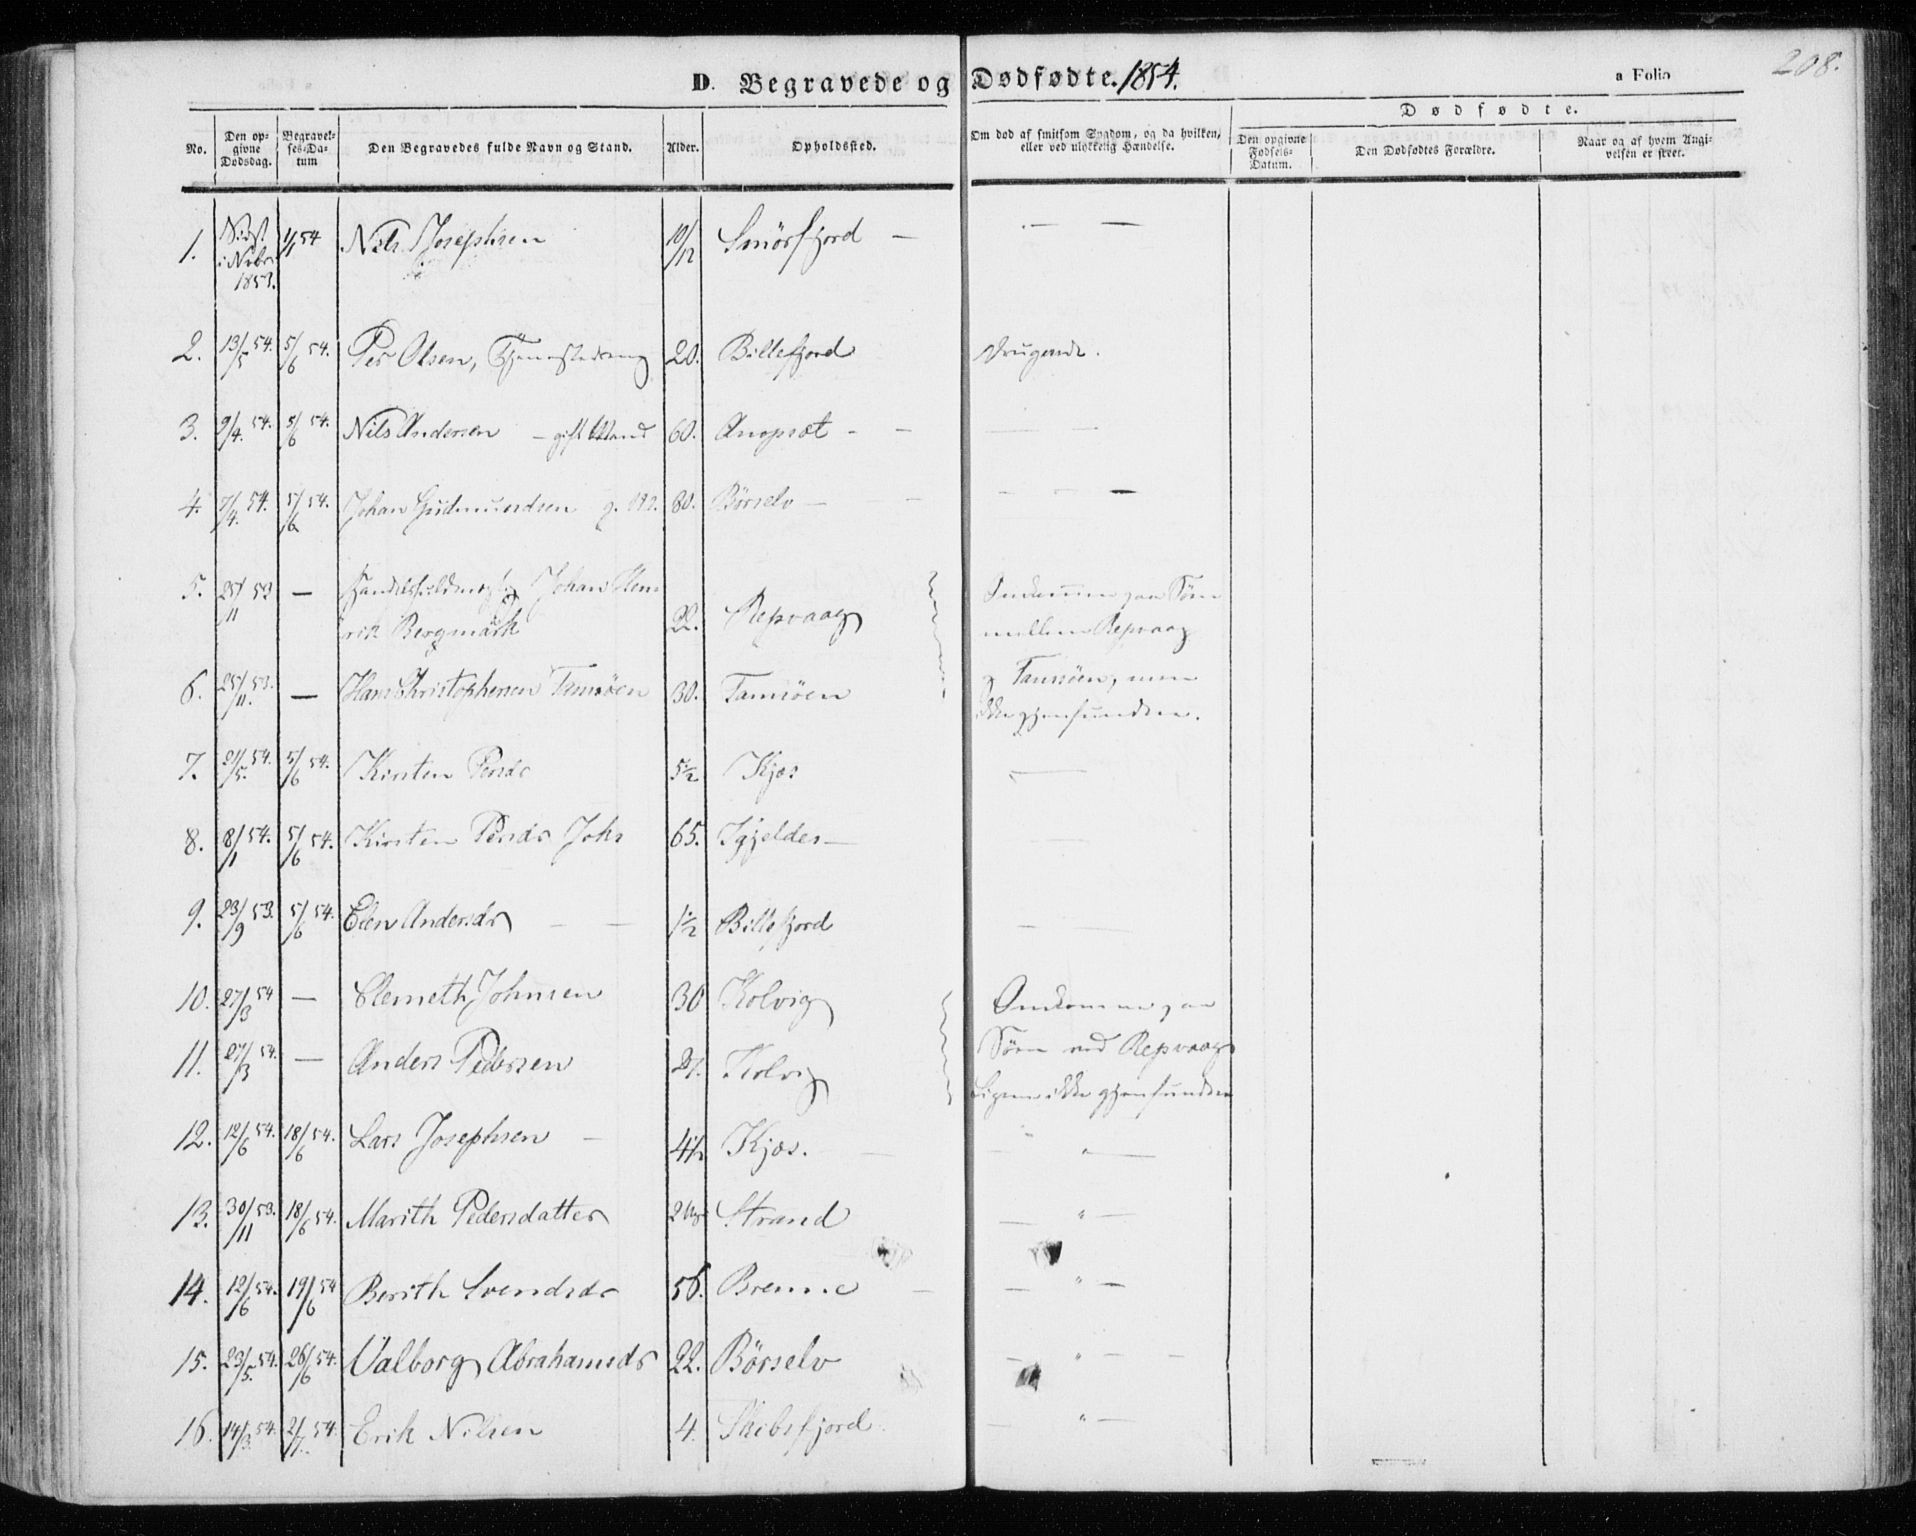 208.
D. Begravede og Dødfødte. 1854. a Folio
No.
Den op-
givne
Dødsdag.
Begravel-
ses-Da-
tum
Den Begravedes fulde Navn og Stand.
Alder.
Opholdssted.
Om død af smitsom Sygdom, og da hvilken,
eller ved ulykkelig Hændelse.
Dødfødte.
Den opgivne
Fødsels-
Datum.
Den Dødfødtes Forældre.
Naar og af hvem Angi-
velsen er skeet.
1. Nils Josephsen 10/12 Smörfjord —
i Nvbr 1/1 54
1853.
2. 13/5 54. 5/6 54. Per Olsen, 20. Billefjord
3. 9/4 54. 5/6 54. Nils Andersen — gift Mand 60. — —
4. 7/4 54. 5/6 54. Johan Gudmundsen 80. Börselv —
5. 25/11 53 — Johan Hen
rik Bergmark 22. Repvaag
Omkommen paa Søen
mellem Repvaag
6. 25/11 53. — Hans Christophersen Tamsöen 30. Tamsöen
og Tamsöen, men
ikke gjenfundne.
7. 21/5 54. 5/6 54. Kirsten Persdr 5½ Kjæs
8. 8/1 54. 5/6 54. Kirsten Persdr Johs 65.
9. 23/9 53. 5/6 54. Elen Andersdr 1½ Billefjord
10. 27/3 54 — Clemeth Johnsen 30 Kolvig
Omkommen paa
11. 27/3 54. — Anders Pedersen Kolvig
Søen ved Repvaag
Ligene ikke gjenfundne
12. 12/6 54. 18/6 54. Lars Josephsen — 4½ Kjæs.
13. 30/11 53. 18/6 54. Marith Pedersdatter Strand
14. 12/6 54. 19/6 54 Berith Svendsdr 56. Brenne
15. 23/5 54. 26/6 54. Valborg Abrahamsdr 22. Börselv
16. 14/3 54. 2/7 54. Erik Nilsen 4. Skibsfjord